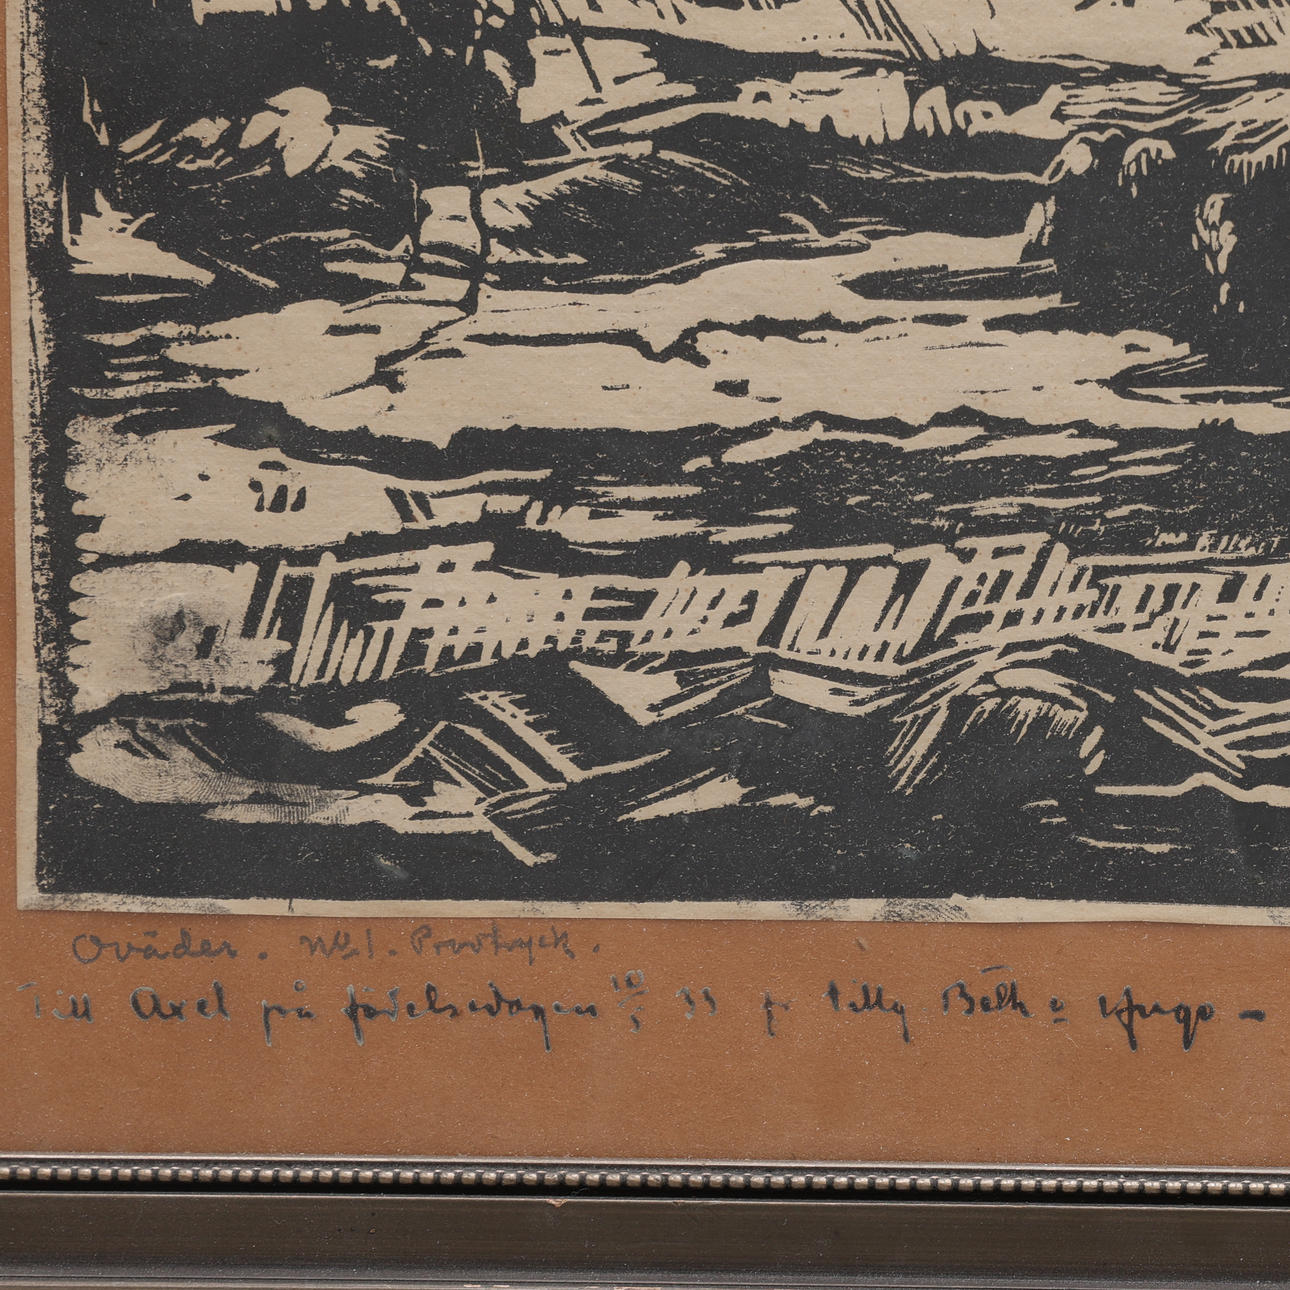 Oväder. No 1. Provtryck.
Till Axel på födelsedagen 10/5 33 fr Tilly. Beth o Hugo –